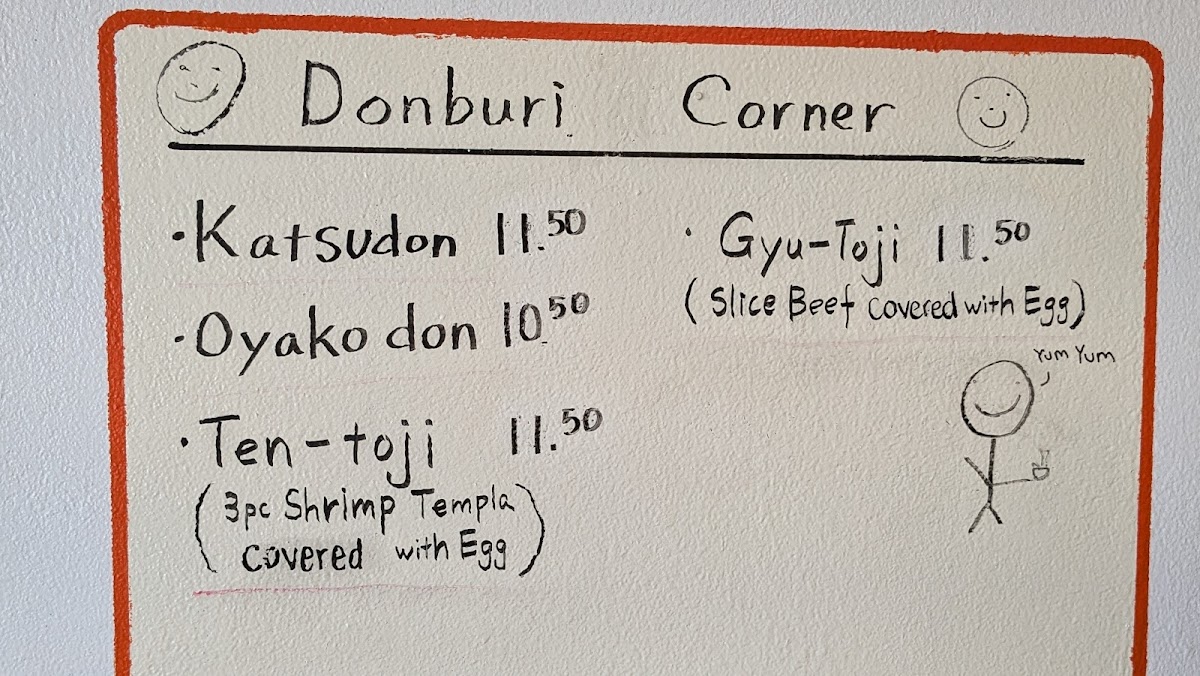 Donburi Corner
・Katsudon 11.50
・Oyako don 10.50
・Ten-toji 11.50
(3pc Shrimp Templa
covered with Egg)
・Gyu-Toji 11.50
(Slice Beef covered with Egg)
Yum Yum